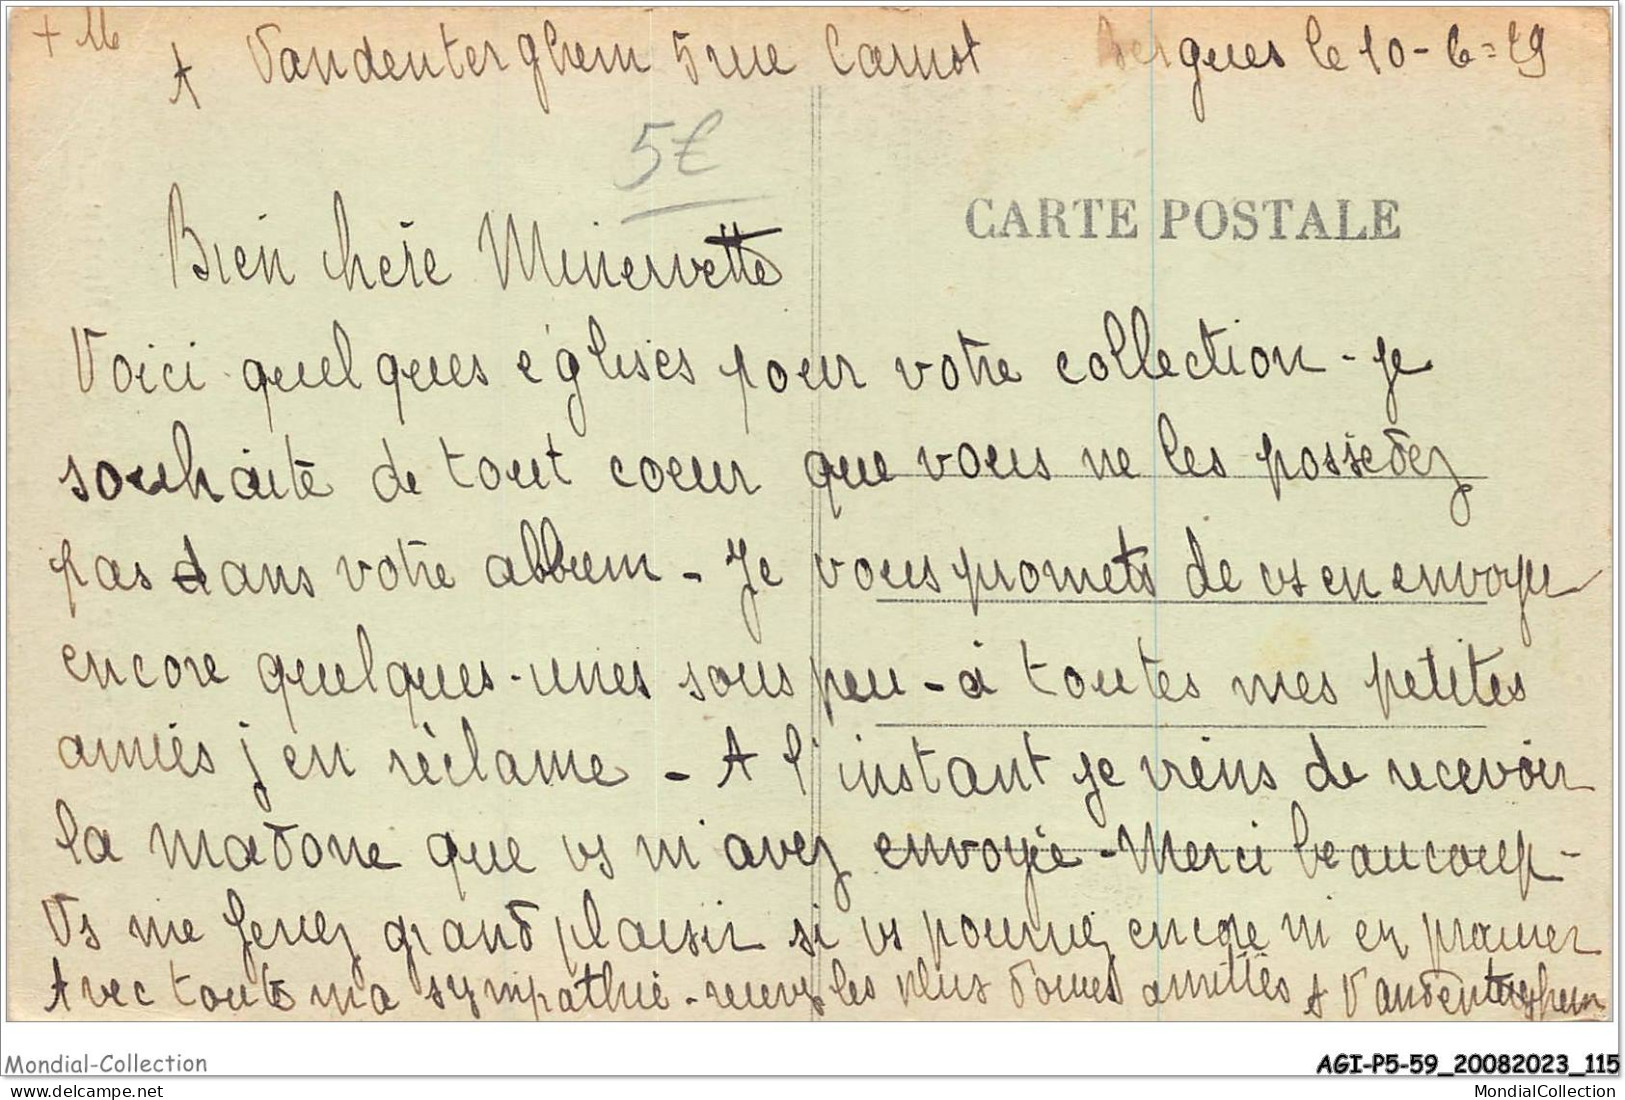 + 16
A Vandenterghem 5 rue Carnot Bergues le 10-6-29
5€
CARTE POSTALE
Bien chère Minervette
Voici quelques églises pour votre collection - je
souhaite de tout coeur que vous ne les possédez
pas dans votre album - Je vous promets de vs en envoyer
encore quelques-unes sous peu - à toutes mes petites
amies j'en réclame - A l'instant je viens de recevoir
la madone que vs m'avez envoyée - Merci beaucoup -
Vs me ferez grand plaisir si vs pouvez encore m'en procurer
Avec toute ma sympathie - recevez les plus douces amitiés A Vandenterghem
Mondial-Collection
AGI-P5-59_20082023_115
MondialCollection
MondialCollection